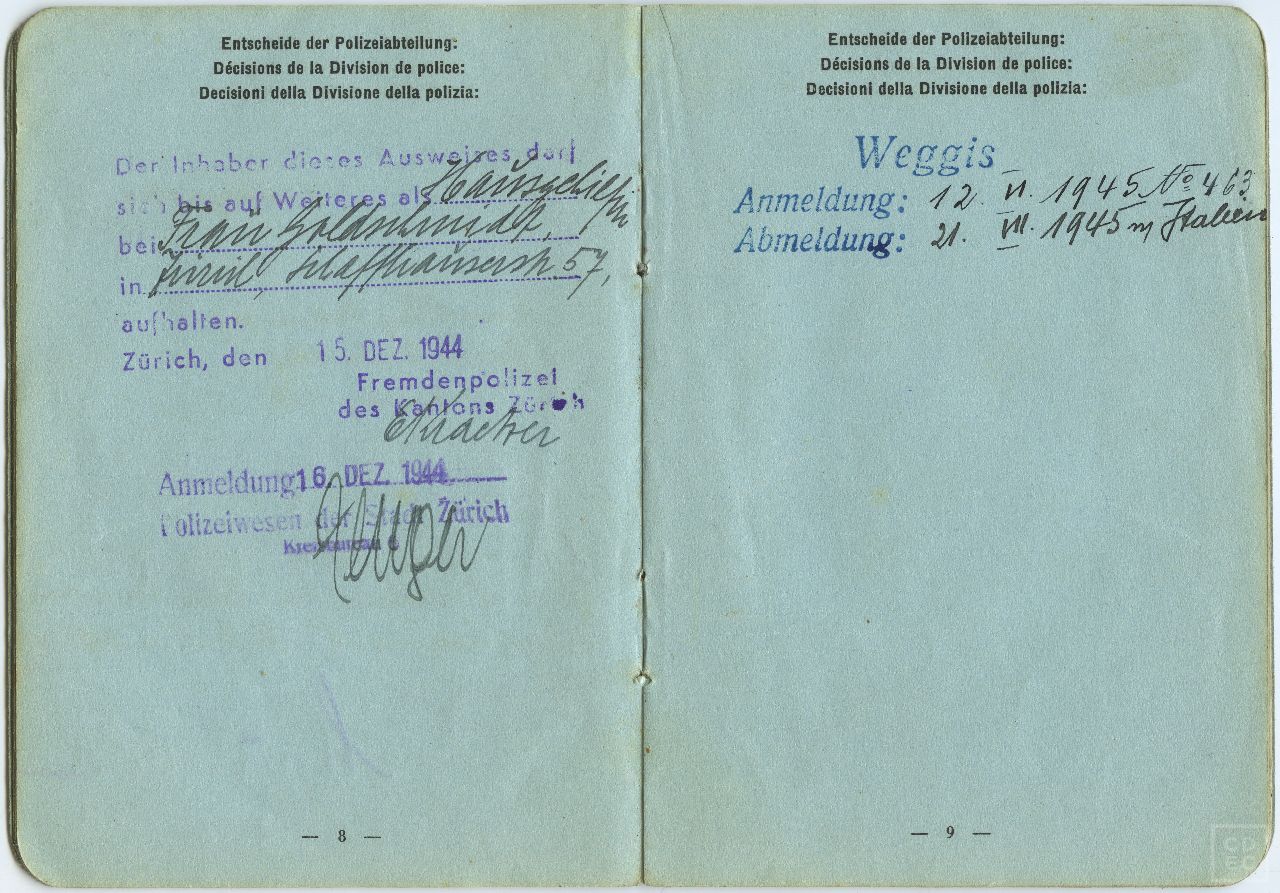 Entscheide der Polizeiabteilung:
Décisions de la Division de police:
Decisioni della Divisione della polizia:
Der Inhaber dieses Ausweises darf
sich bis auf Weiteres als
bei Frau Goldschmidt,
in Zürich, Schaffhauserstr. 57,
aufhalten.
Zürich, den 15. DEZ. 1944
Fremdenpolizei
des Kantons Zürich
Anmeldung 16. DEZ. 1944
Polizeiwesen der Stadt Zürich
Kreisbureau 6
— 8 —
Entscheide der Polizeiabteilung:
Décisions de la Division de police:
Decisioni della Divisione della polizia:
Weggis
Anmeldung: 12. VI. 1945 No 463
Abmeldung: 21. VII. 1945 n/ Italien
— 9 —
CDEC